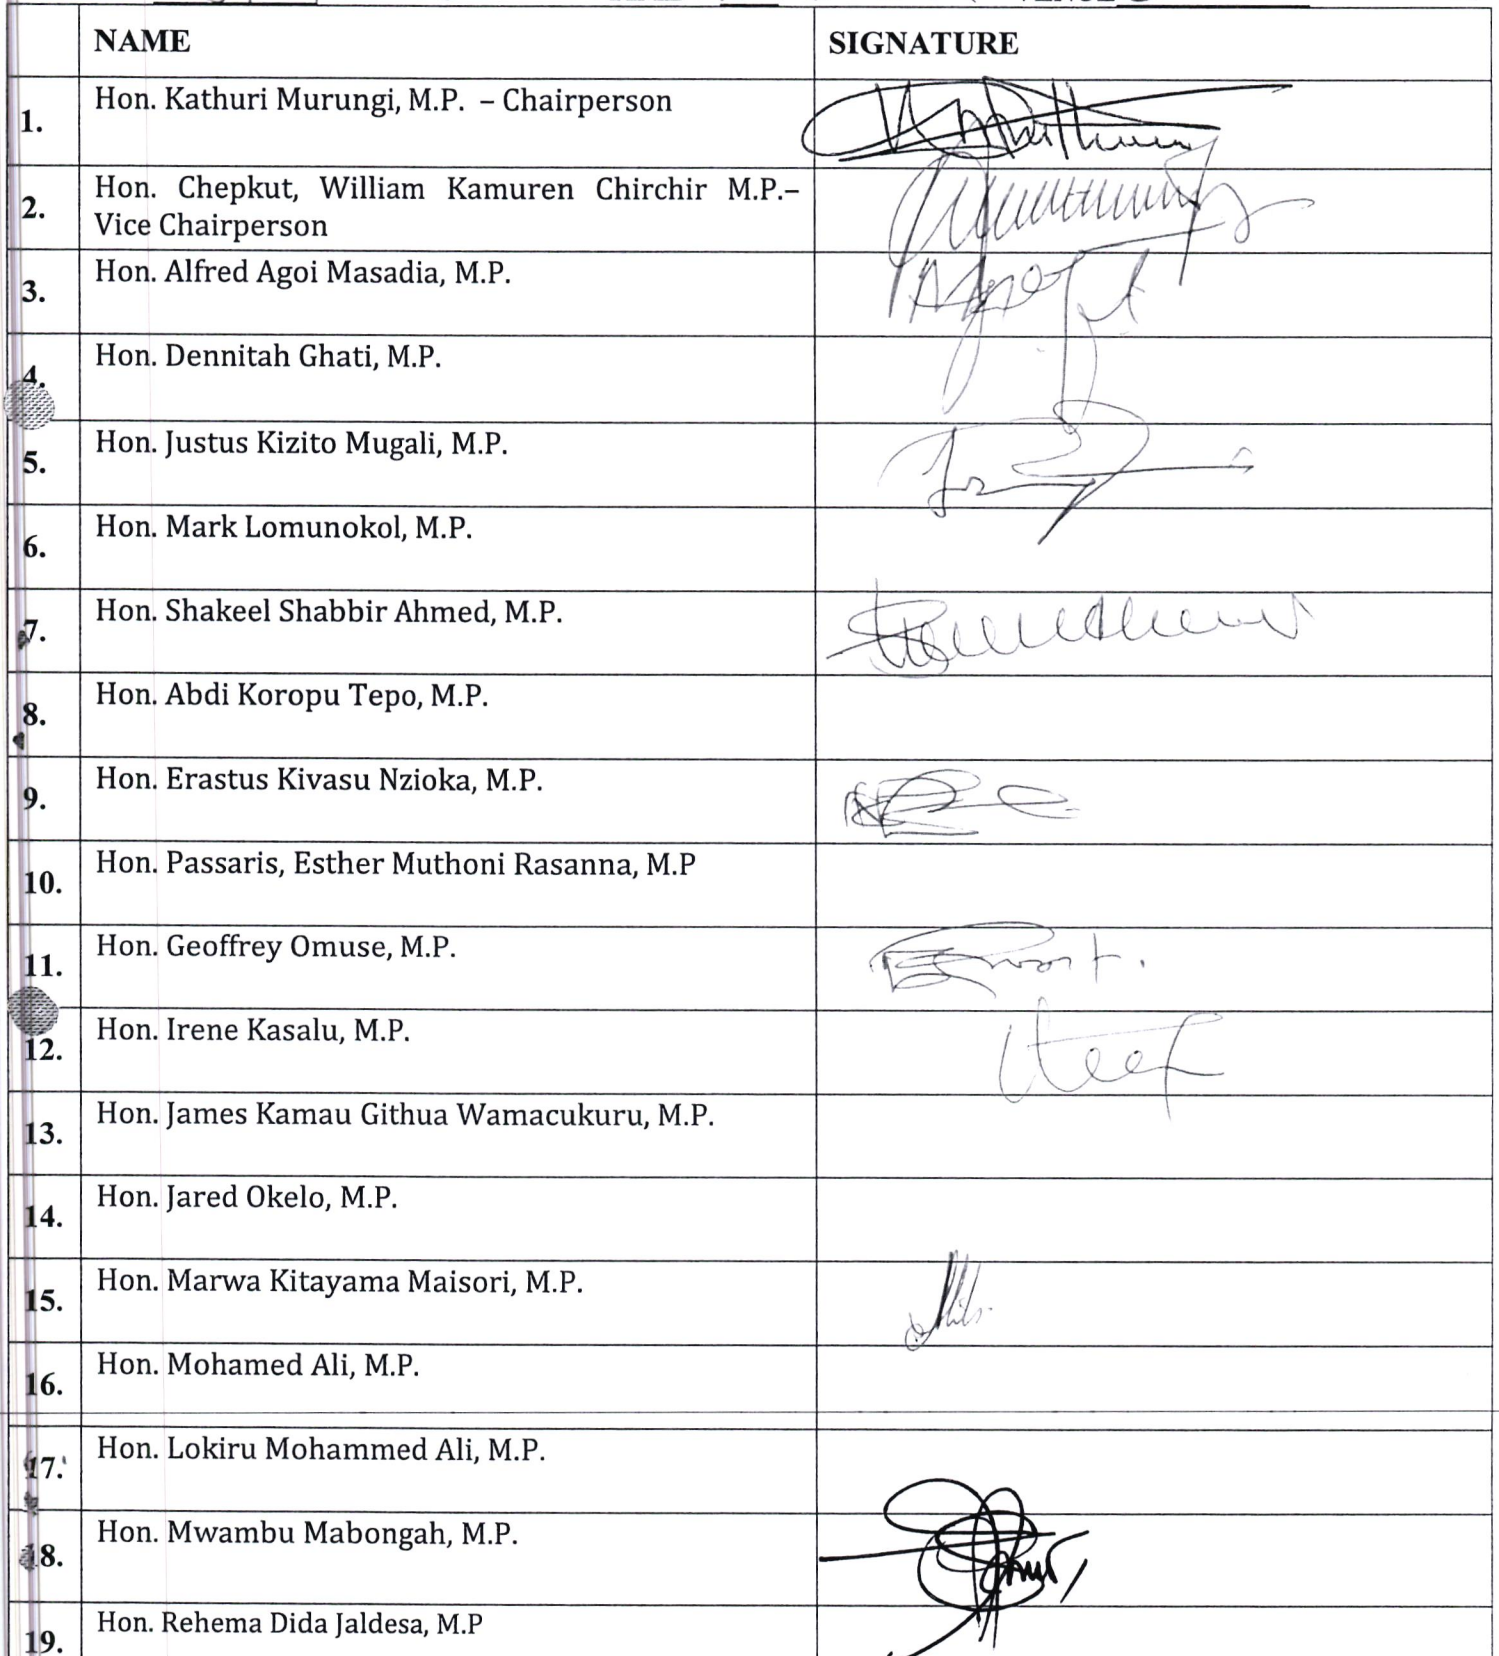 NAME SIGNATURE
1. Hon. Kathuri Murungi, M.P. – Chairperson
2. Hon. Chepkut, William Kamuren Chirchir M.P.–
Vice Chairperson
3. Hon. Alfred Agoi Masadia, M.P.
4. Hon. Dennitah Ghati, M.P.
5. Hon. Justus Kizito Mugali, M.P.
6. Hon. Mark Lomunokol, M.P.
7. Hon. Shakeel Shabbir Ahmed, M.P.
8. Hon. Abdi Koropu Tepo, M.P.
9. Hon. Erastus Kivasu Nzioka, M.P.
10. Hon. Passaris, Esther Muthoni Rasanna, M.P
11. Hon. Geoffrey Omuse, M.P.
12. Hon. Irene Kasalu, M.P.
13. Hon. James Kamau Githua Wamacukuru, M.P.
14. Hon. Jared Okelo, M.P.
15. Hon. Marwa Kitayama Maisori, M.P.
16. Hon. Mohamed Ali, M.P.
17. Hon. Lokiru Mohammed Ali, M.P.
18. Hon. Mwambu Mabongah, M.P.
19. Hon. Rehema Dida Jaldesa, M.P